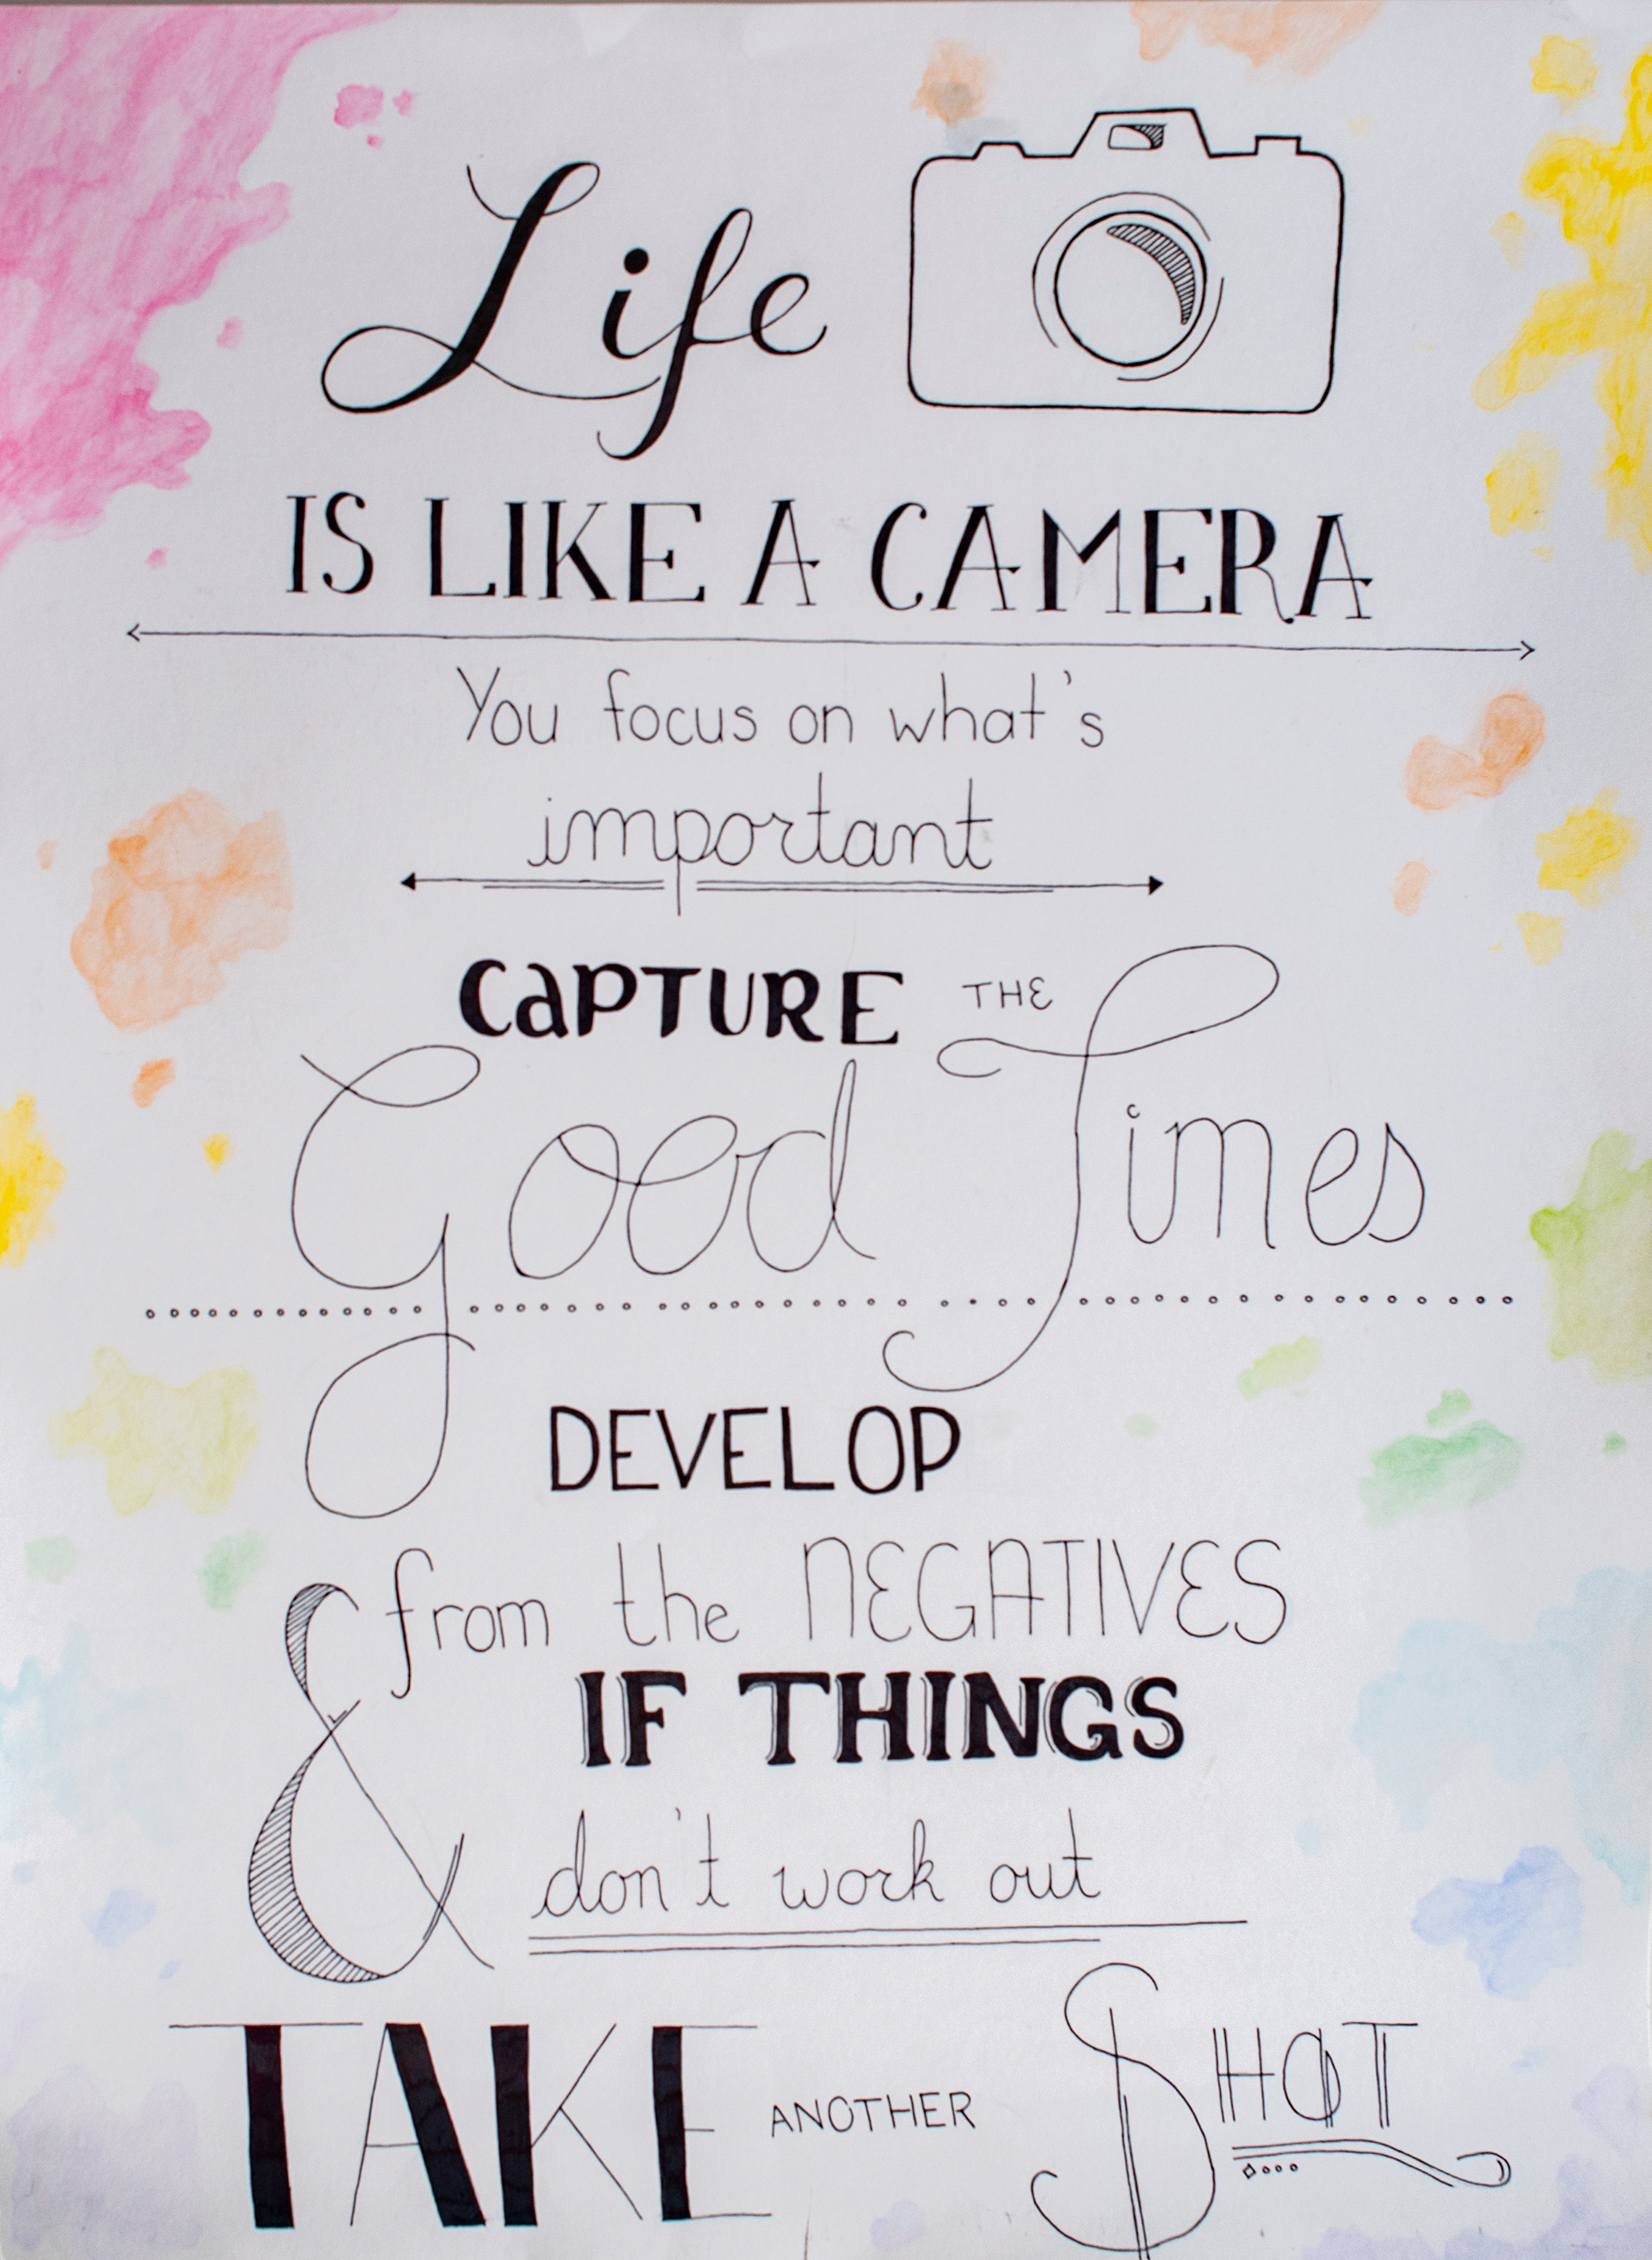 Life
IS LIKE A CAMERA
You focus on what's
important
CaPTURE THE
Good Times
DEVELOP
from the NEGATIVES
& IF THINGS
don't work out
TAKE ANOTHER SHOT